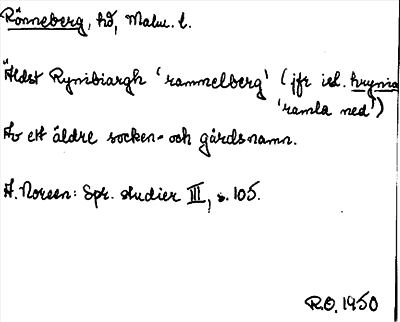 Rönneberg, hd, Malm. l.
Äldst Rynibiargh 'rammelberg' (jfr isl. hrynia
'ramla ned')
Av ett äldre socken- och gårdsnamn.
A. Noreen: Spr. studier III, s. 105.
R.O. 1950